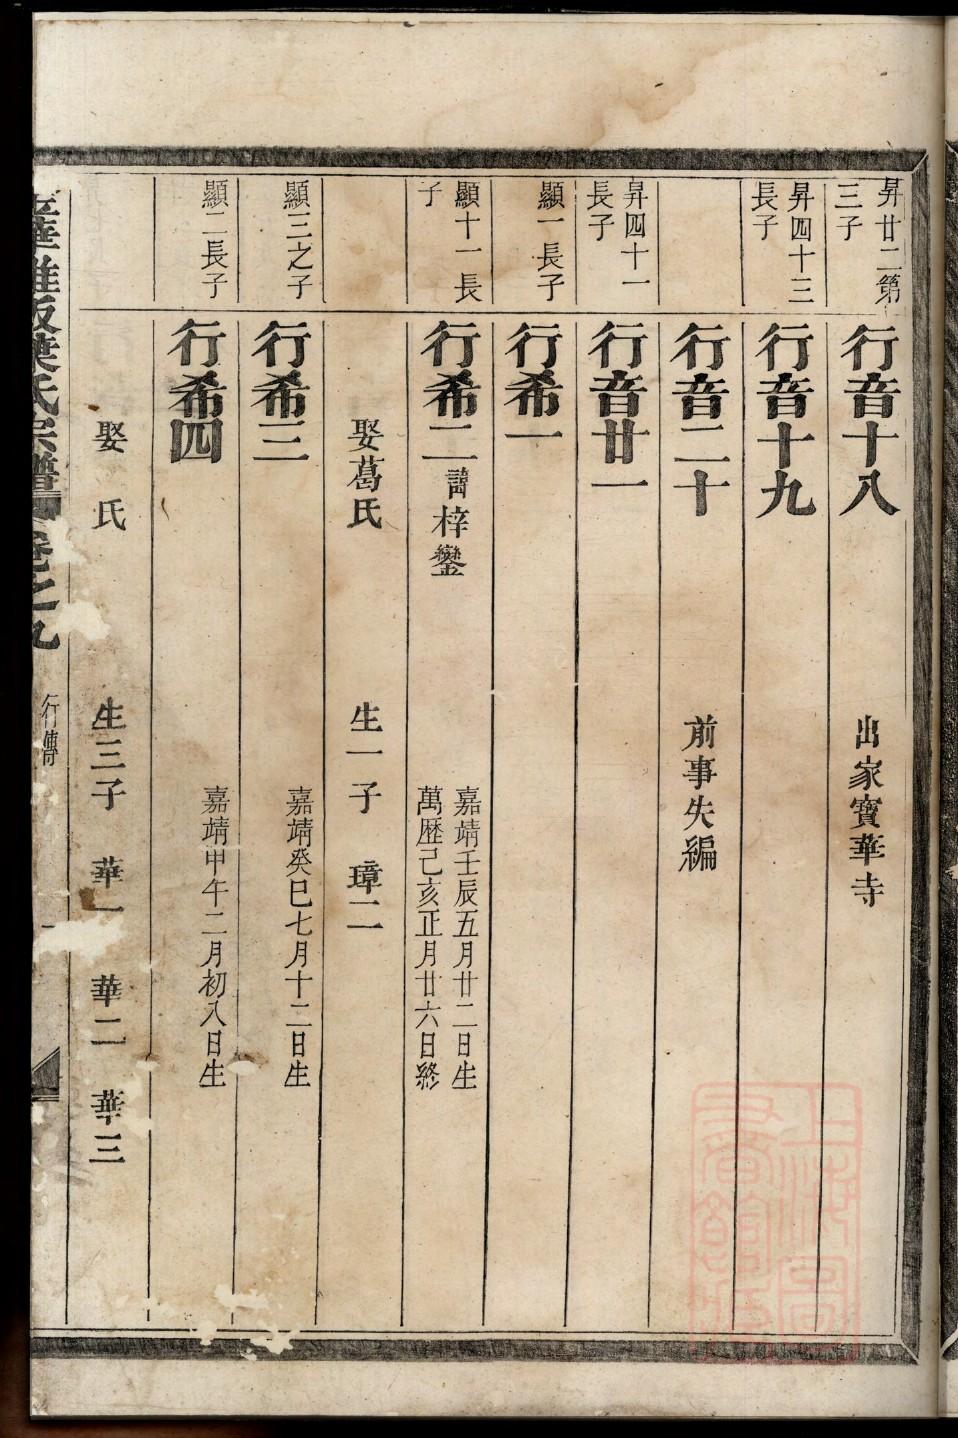 昇廿二第
三子
行音十八
出家寶華寺
昇四十三
長子
行音十九
行音二十
前事失編
昇四十一
長子
行音廿一
顯一長子
行希一
顯十一長
子
行希二諱梓鑾
嘉靖壬辰五月廿二日生
萬歷己亥正月廿六日終
娶葛氏
生一子 璋二
顯三之子
行希三
嘉靖癸巳七月十二日生
顯二長子
行希四
嘉靖甲午二月初八日生
娶 氏
生三子 華一 華二 華三
氏宗譜 卷之九
行傳
上海圖
書館藏